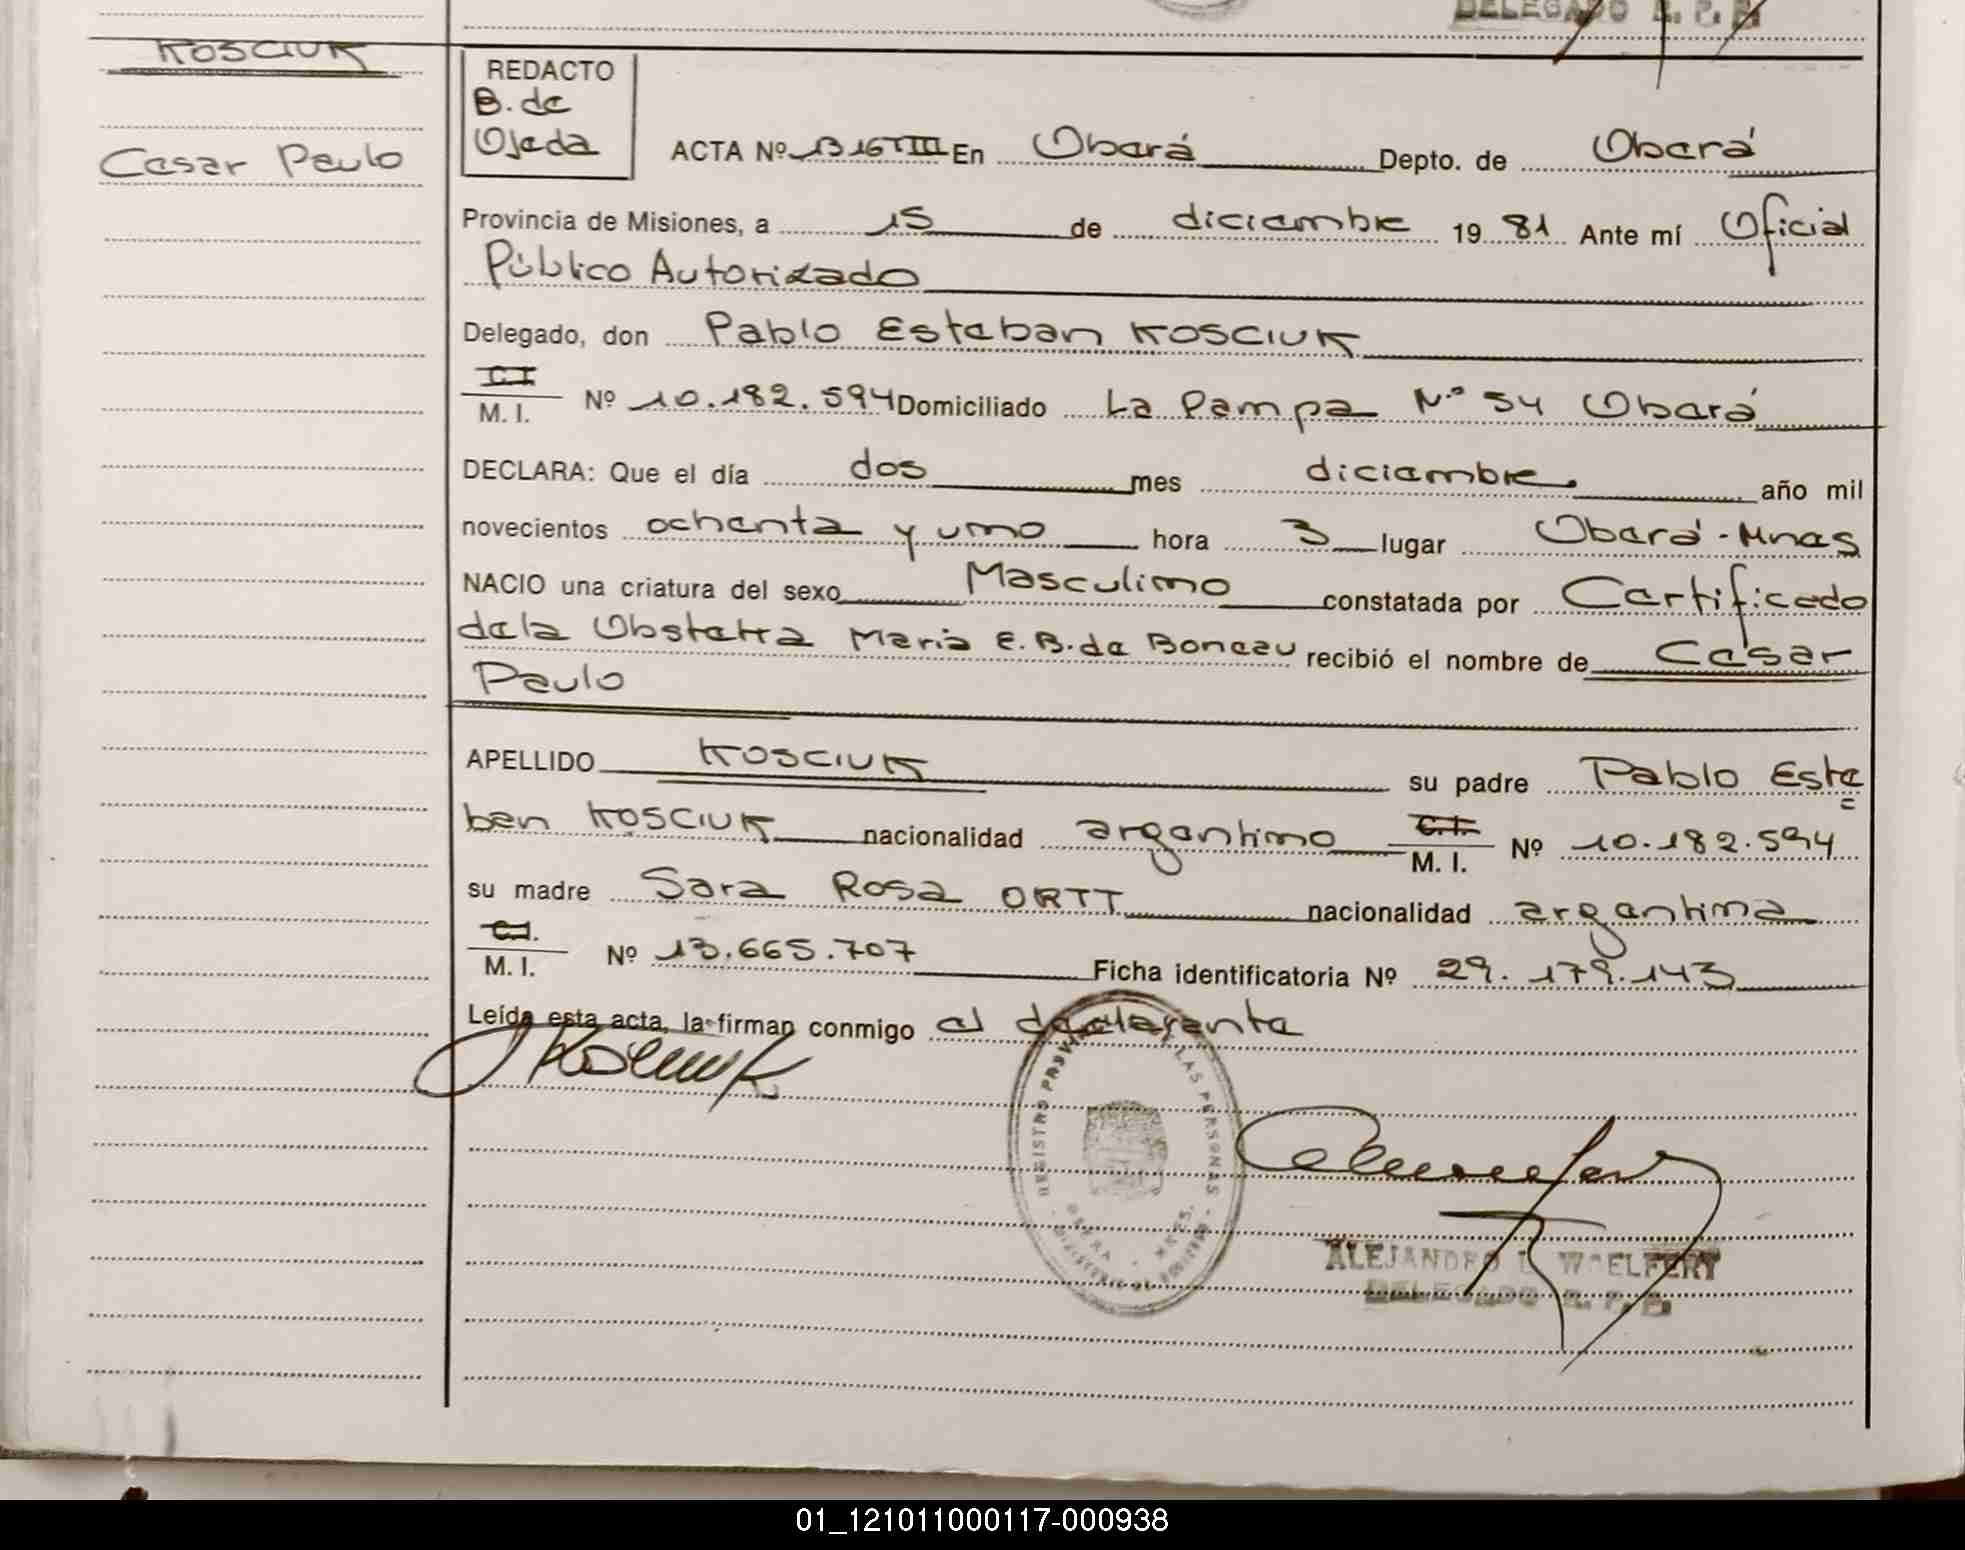 DELEGADO R. P. P.
KOSCIUK
Cesar Paulo
REDACTO
B. de
Ojeda
ACTA Nº 1316 TIII En Oberá Depto. de Oberá
Provincia de Misiones, a 15 de diciembre 19 81 Ante mí Oficial
Público Autorizado
Delegado, don Pablo Esteban KOSCIUK
C.I.
M. I. Nº 10.182.594 Domiciliado La Pampa N.º 54 Oberá
DECLARA: Que el día dos mes diciembre. año mil
novecientos ochenta y uno hora 3 lugar Oberá - Mnes
NACIO una criatura del sexo Masculino constatada por Certificado
de la Obstetra Maria E. B. de Boneau recibió el nombre de Cesar
Paulo
APELLIDO KOSCIUK su padre Pablo Este
ben KOSCIUK nacionalidad argentino C.I. M. I. Nº 10.182.594
su madre Sara Rosa ORTT nacionalidad argentina
C.I.
M. I. Nº 13.665.707 Ficha identificatoria Nº 29.179.143
Leída esta acta, la firman conmigo el declarante
Kosciuk
REGISTRO PROV. DE LAS PERSONAS
OBERA - MNES.
MINISTERIO DE GOBIERNO
ALEJANDRO L. WOELFERT
DELEGADO R. P. P.
01_121011000117-000938